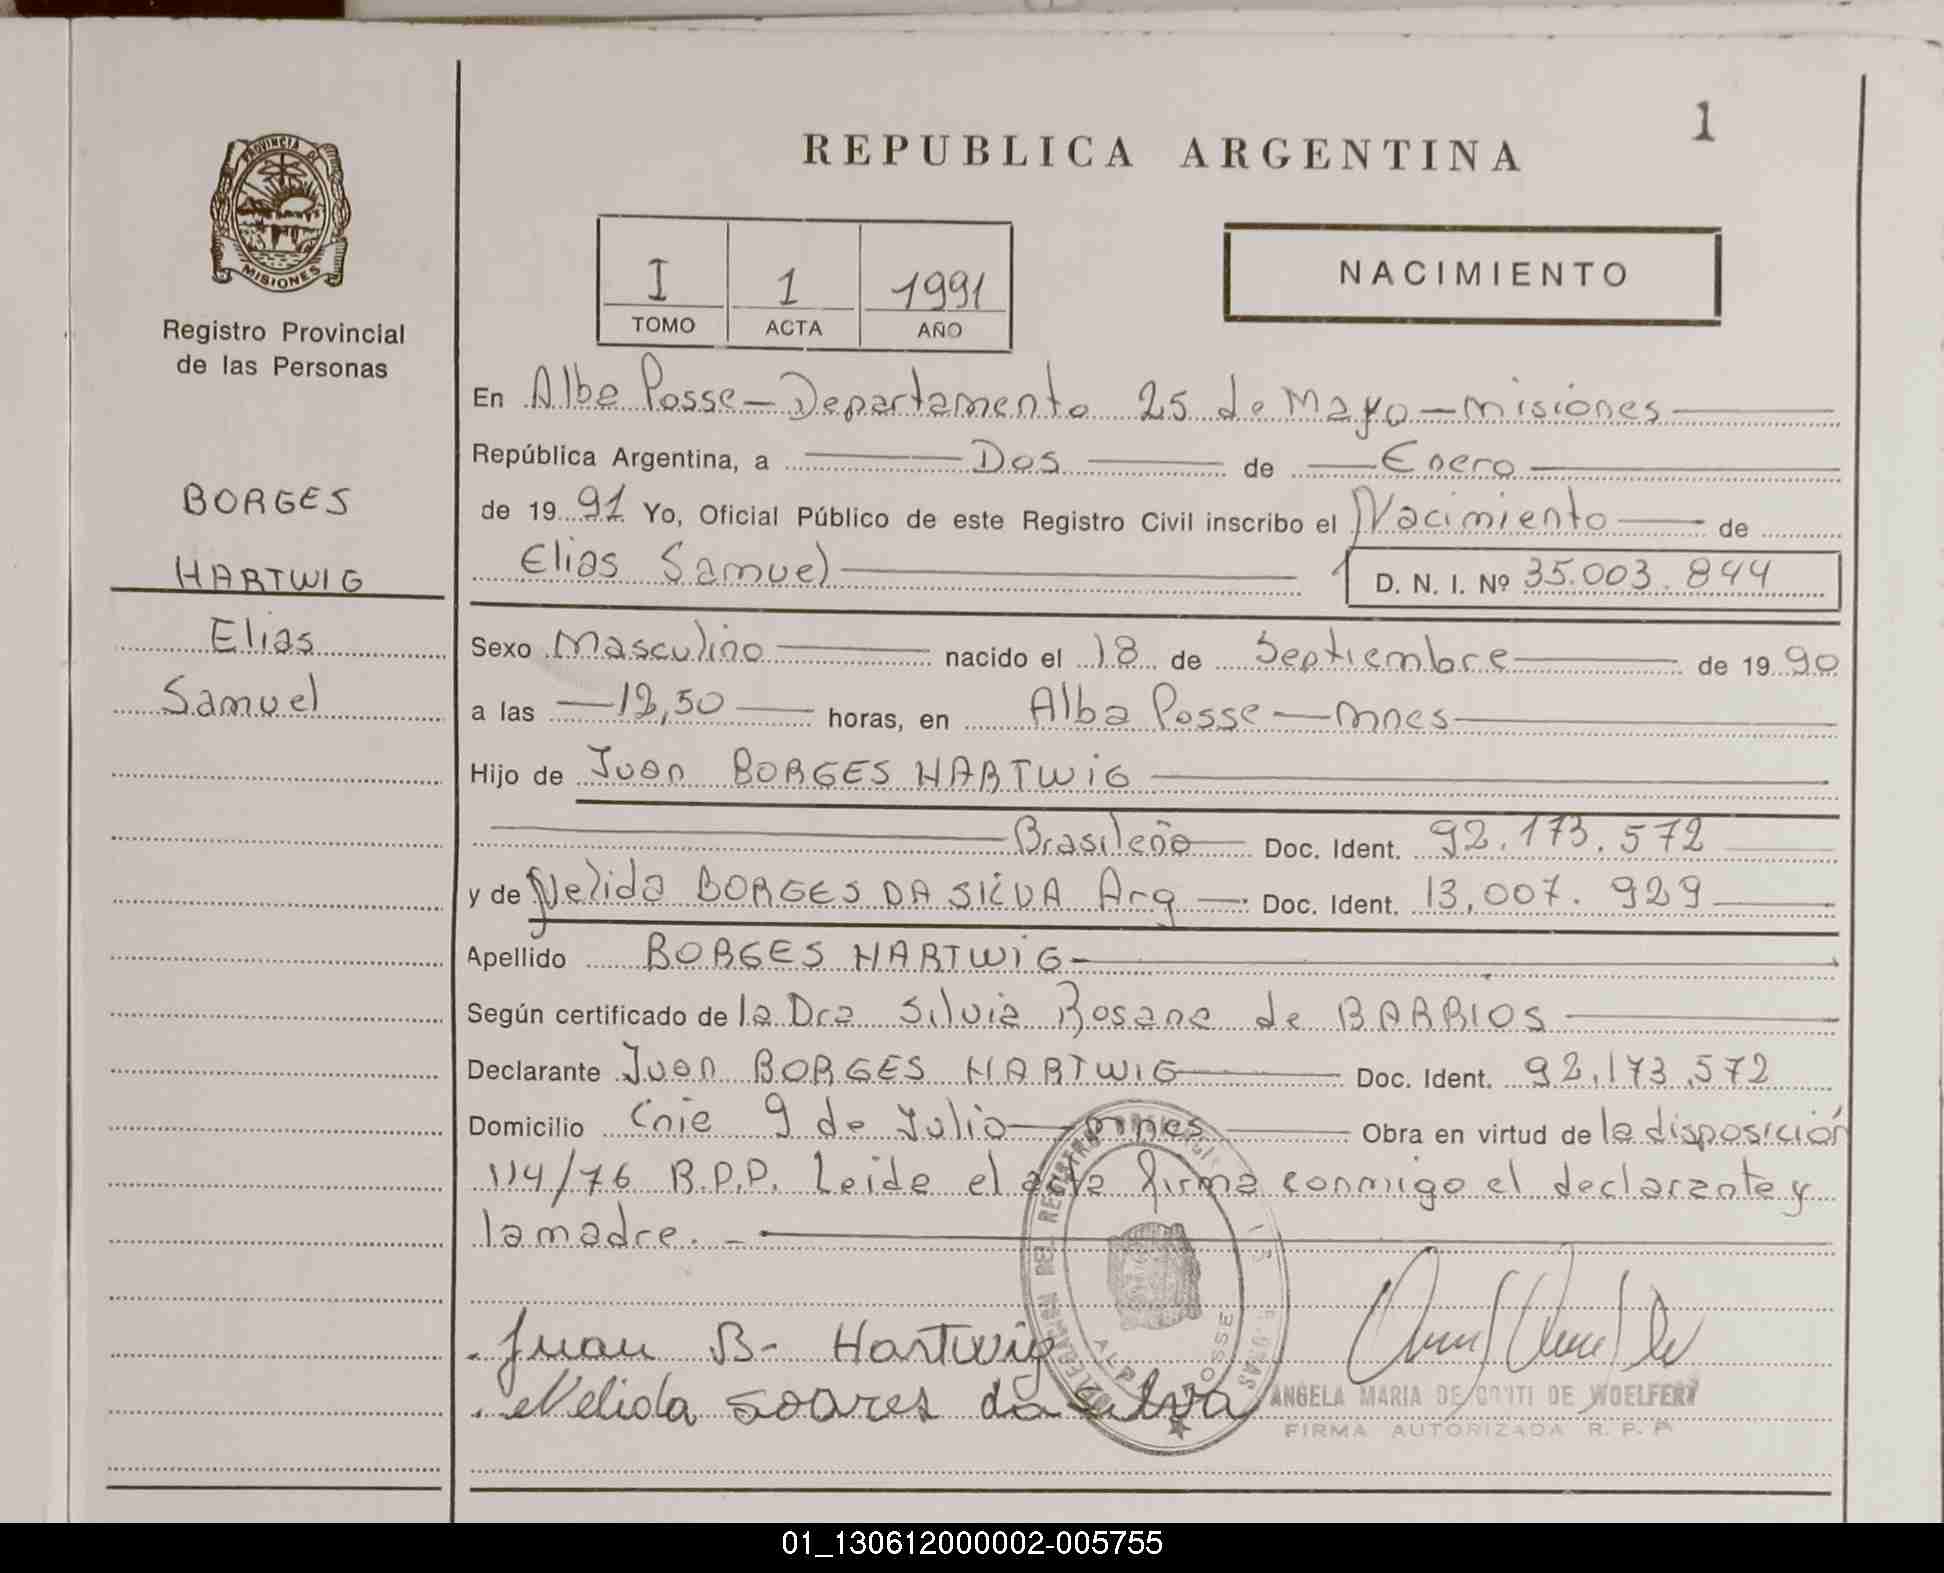 1
REPUBLICA ARGENTINA
PROVINCIA DE
MISIONES
Registro Provincial
de las Personas
I 1 1991
TOMO ACTA AÑO
NACIMIENTO
BORGES
HARTWIG
Elias
Samuel
En Alba Posse - Departamento 25 de Mayo - Misiones
República Argentina, a Dos de Enero
de 1991 Yo, Oficial Público de este Registro Civil inscribo el Nacimiento de
Elias Samuel D. N. I. Nº 35.003.844
Sexo Masculino nacido el 18 de Septiembre de 1990
a las 12,50 horas, en Alba Posse - Mnes
Hijo de Juan BORGES HARTWIG
Brasileño Doc. Ident. 92.173.572
y de Nelida BORGES DA SILVA Arg - Doc. Ident. 13,007.929
Apellido BORGES HARTWIG
Según certificado de la Dra Silvia Rosane de BARRIOS
Declarante Juan BORGES HARTWIG Doc. Ident. 92,173,572
Domicilio Cnie 9 de Julio - mnes Obra en virtud de la disposición
114/76 R.P.P. Leida el acta firma conmigo el declarante y
la madre. -
Juan B- Hartwig
Nelida soares da silva
ANGELA MARIA DE CONTI DE WOELFERT
FIRMA AUTORIZADA R. P. P.
01_130612000002-005755